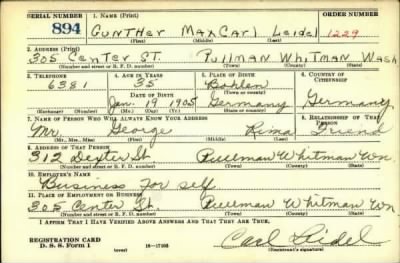 SERIAL NUMBER 1. NAME (Print) ORDER NUMBER
894 GUNTHER MAX Carl Leidel 1229
(First) (Middle) (Last)
2. ADDRESS (Print)
305 Center ST. Pullman Whitman Wash
(Number and street or R. F. D. number) (Town) (County) (State)
3. TELEPHONE 4. AGE IN YEARS 5. PLACE OF BIRTH 6. COUNTRY OF CITIZENSHIP
6381 35
DATE OF BIRTH (Town or county)
Jan. 19 1905 Germany Germany
(Mo.) (Day) (Yr.) (State or country)
7. NAME OF PERSON WHO WILL ALWAYS KNOW YOUR ADDRESS 8. RELATIONSHIP OF THAT PERSON
Mr. George Rima Friend
(Mr., Mrs., Miss) (First) (Middle) (Last)
9. ADDRESS OF THAT PERSON
312 Dexter St Pullman Whitman Wn.
(Number and street or R. F. D. number) (Town) (County) (State)
10. EMPLOYER'S NAME
Business For self
11. PLACE OF EMPLOYMENT OR BUSINESS
305 Center St. Pullman Whitman Wn.
(Number and street or R. F. D. number) (Town) (County) (State)
I AFFIRM THAT I HAVE VERIFIED ABOVE ANSWERS AND THAT THEY ARE TRUE.
REGISTRATION CARD
D. S. S. Form 1 (over) 16—17105 (Registrant's signature)
Carl Leidel